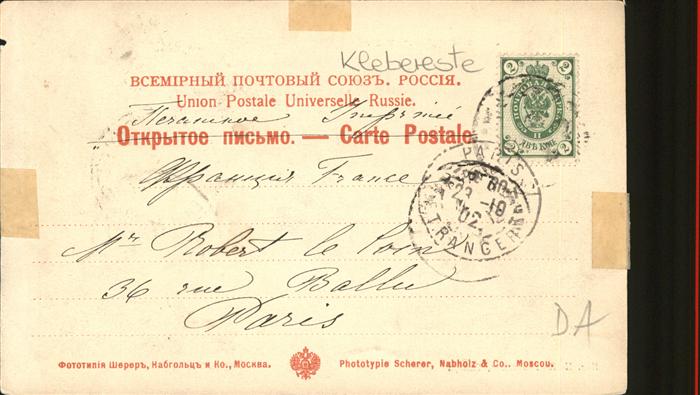 Klebereste
ВСЕМІРНЫЙ ПОЧТОВЫЙ СОЮЗЪ. РОССІЯ.
Union Postale Universelle Russie.
Печатное Imprimé
Открытое письмо. — Carte Postale.
Франція France
Mr Robert le
36 rue Ballu
Paris
2 2
2 ДВѢ КОП. 2
PARIS
ETRANGER
02
DA
Фототипія Шереръ, Набгольцъ и Ко., Москва. Phototypie Scherer, Nabholz & Co.. Moscou.